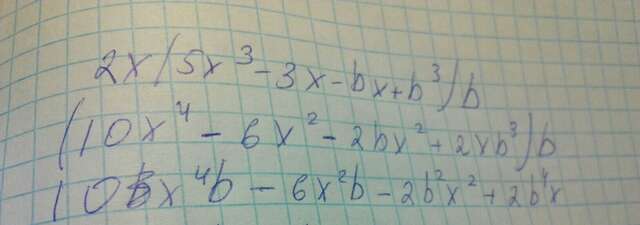 2x(5x³-3x-bx+b³)b
(10x⁴-6x²-2bx²+2xb³)b
10x⁴b-6x²b-2b²x²+2b⁴x